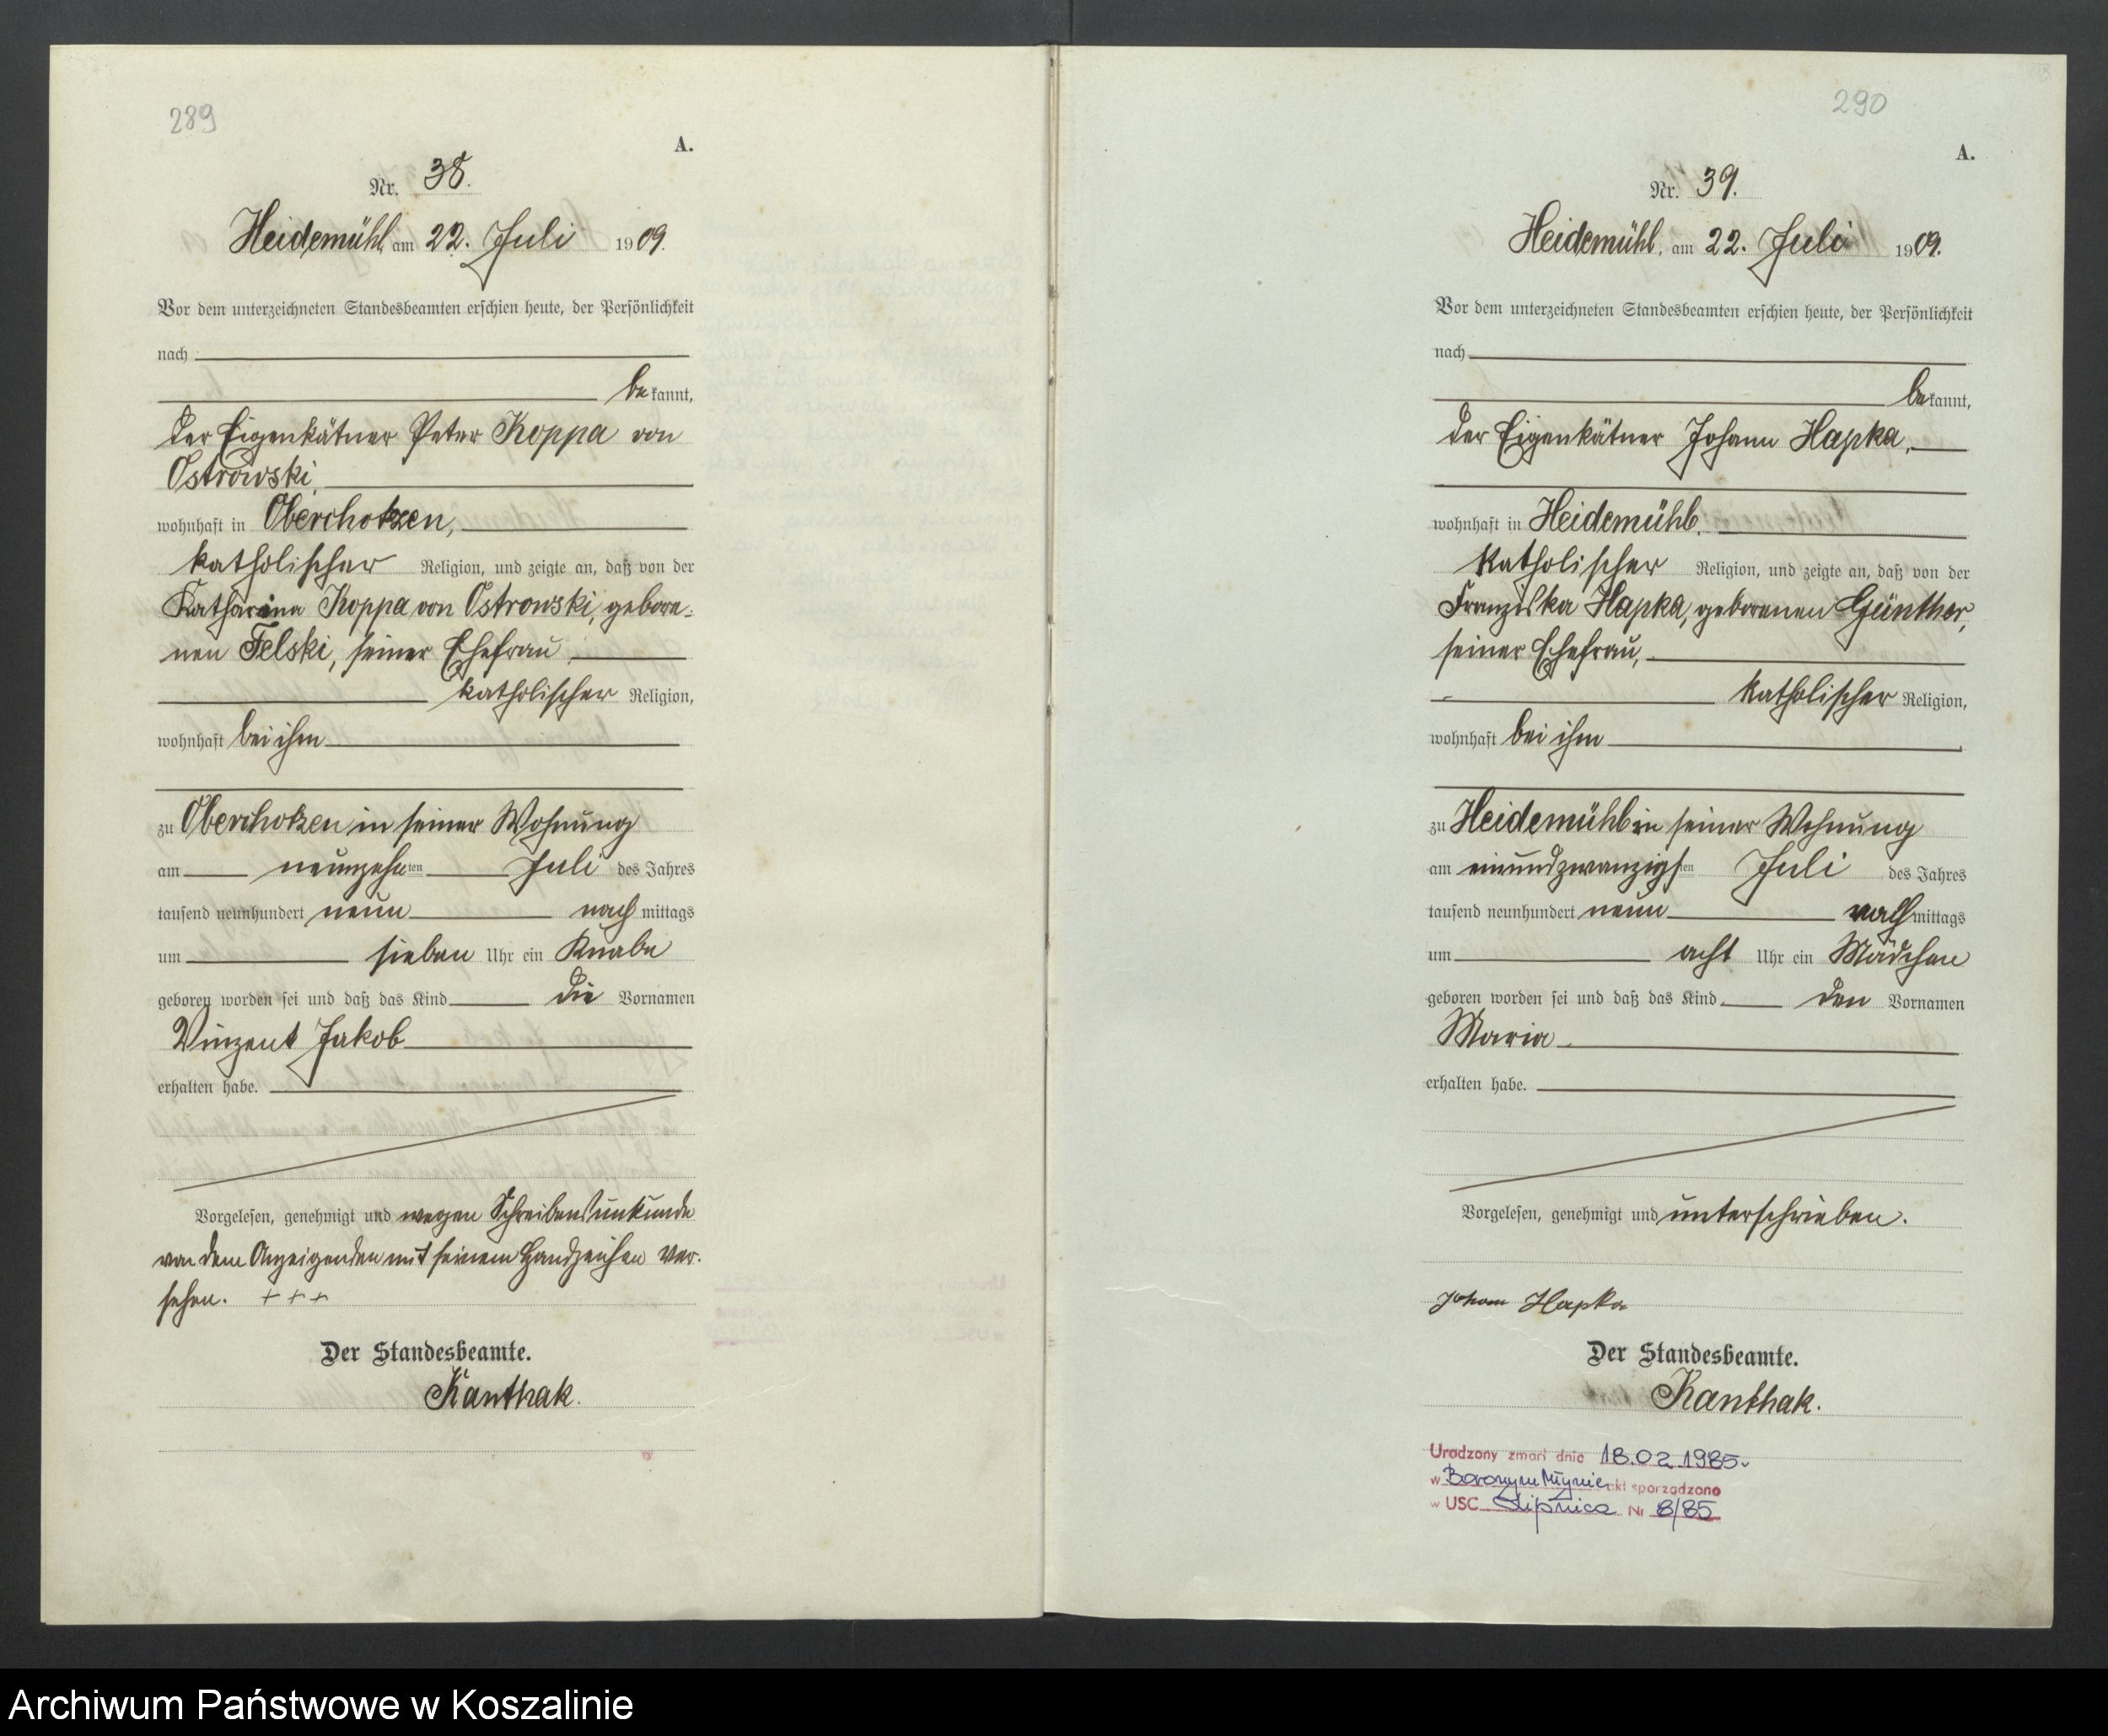 289
A.
Nr. 38.
Heidemühl, am 22. Juli 1909.
Vor dem unterzeichneten Standesbeamten erschien heute, der Persönlichkeit
nach
bekannt,
der Eigenkätner Peter Koppa von
Ostrowski,
wohnhaft in Oberchotzen,
katholischer Religion, und zeigte an, daß von der
Katharina Koppa von Ostrowski, gebore-
nen Felski, seiner Ehefrau,
katholischer Religion,
wohnhaft bei ihm
zu Oberchotzen in seiner Wohnung
am neunzehnten Juli des Jahres
tausend neunhundert neun nachmittags
um sieben Uhr ein Knabe
geboren worden sei und daß das Kind die Vornamen
Vinzent Jakob
erhalten habe.
Vorgelesen, genehmigt und wegen Schreibensunkunde
von dem Anzeigenden mit seinem Handzeichen ver-
sehen. + + +
Der Standesbeamte.
Kanthak.
290
A.
Nr. 39.
Heidemühl, am 22. Juli 1909.
Vor dem unterzeichneten Standesbeamten erschien heute, der Persönlichkeit
nach
bekannt,
der Eigenkätner Johann Hapka,
wohnhaft in Heidemühl,
katholischer Religion, und zeigte an, daß von der
Franziska Hapka, geborenen Günther,
seiner Ehefrau,
katholischer Religion,
wohnhaft bei ihm
zu Heidemühl in seiner Wohnung
am einundzwanzigsten Juli des Jahres
tausend neunhundert neun nachmittags
um acht Uhr ein Mädchen
geboren worden sei und daß das Kind den Vornamen
Maria
erhalten habe.
Vorgelesen, genehmigt und unterschrieben.
Johann Hapka
Der Standesbeamte.
Kanthak.
Urodzony zmarł dnia 18.02.1985r
w Borowym Młynie akt sporządzono
w USC Lipnica Nr 8/85
Archiwum Państwowe w Koszalinie